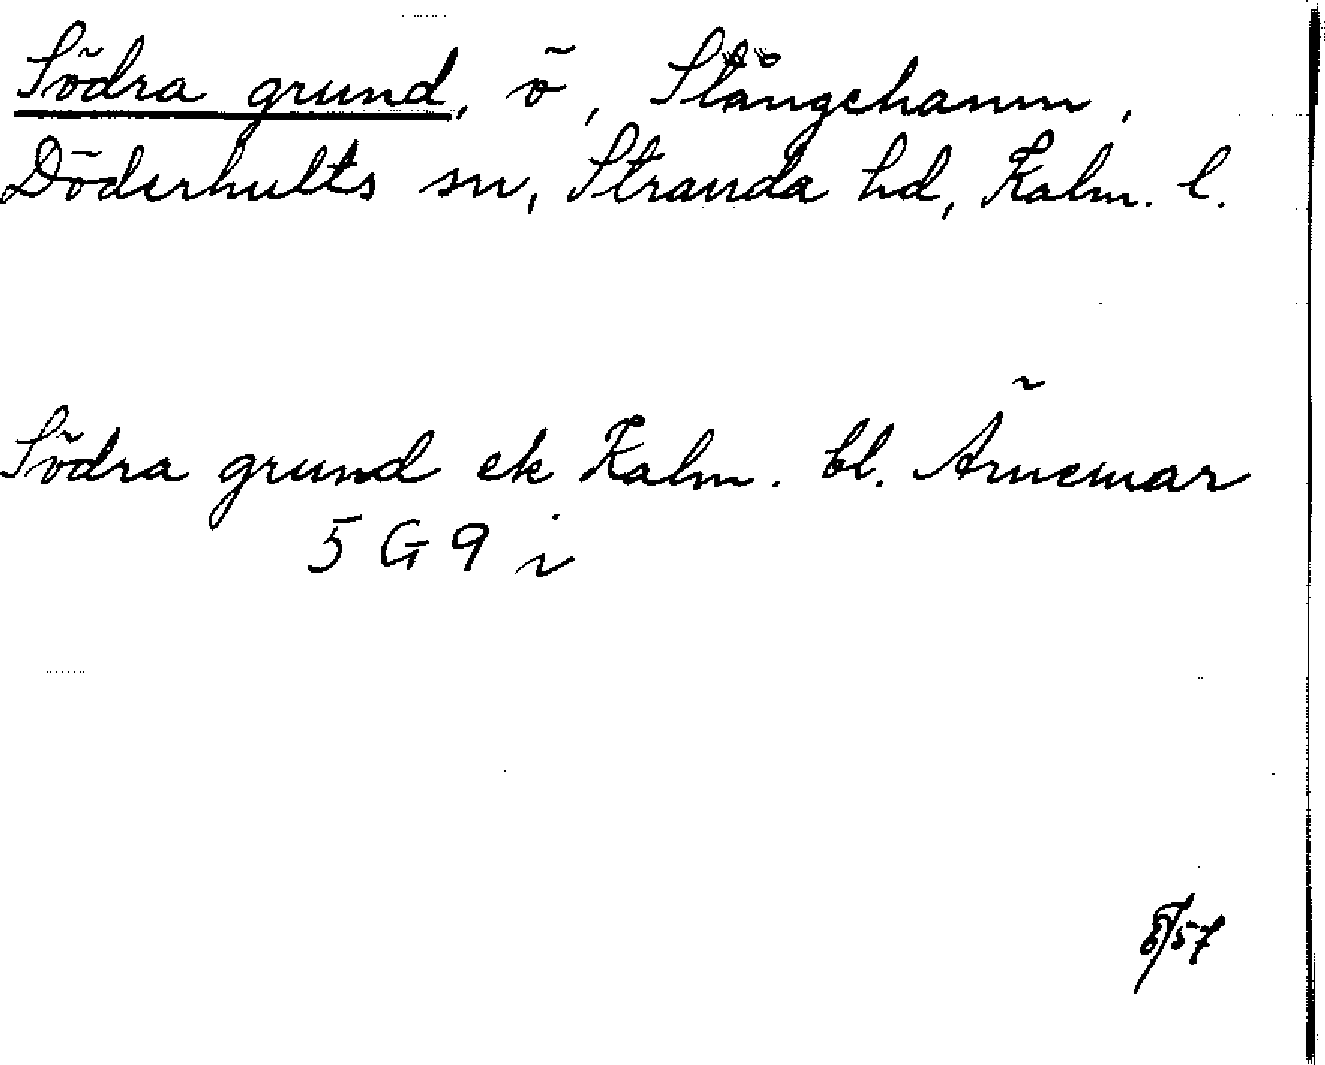 Södra grund, ö, Stångehamn,
Döderhults sn, Stranda hd, Kalm. l.
Södra grund ek Kalm. bl. Ärnemar
5 G 9 i